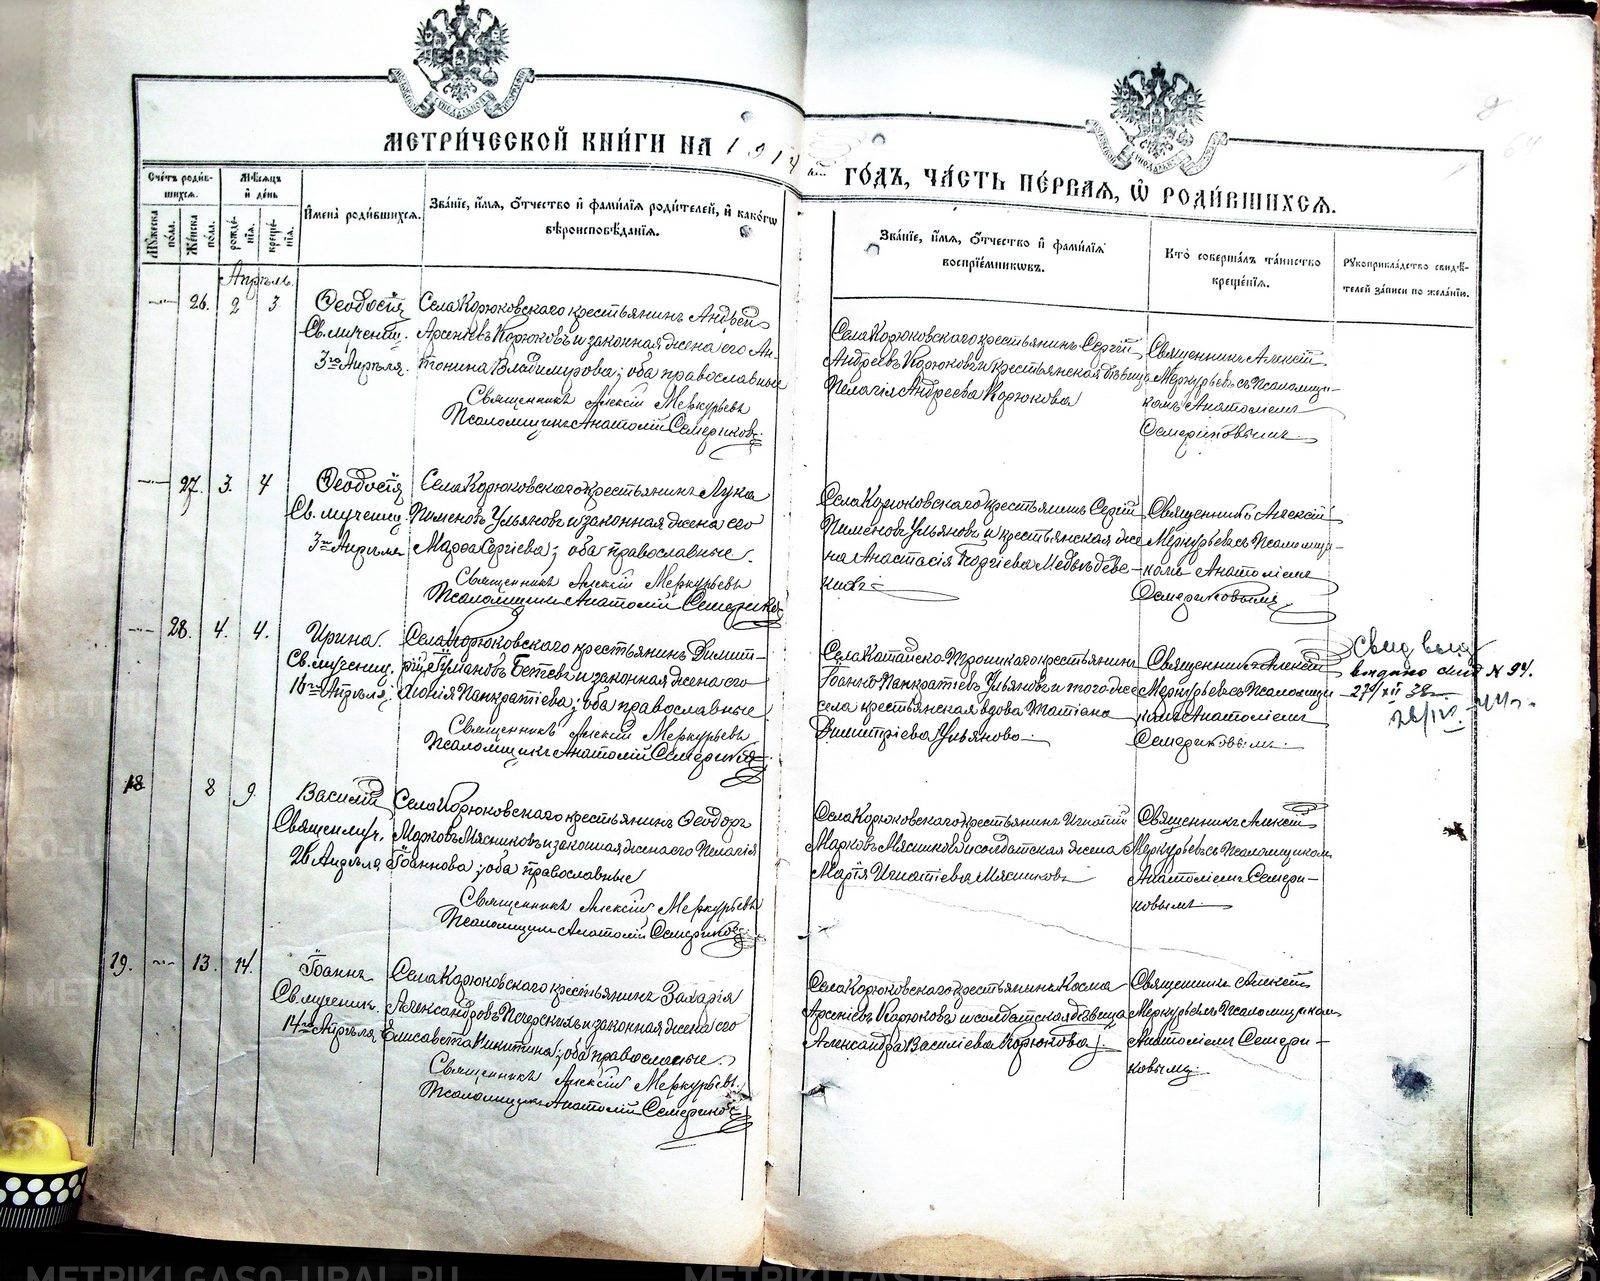 МЕТРИ́ЧЕСКОЙ КНИ́ГИ НА 1914
ГО́ДЪ, ЧА́СТЬ ПЕ́РВАЯ, Ѡ РОДИ́ВШИХСЯ.
Сче́тъ роди́в-
шихся.
Мѣ́сяцъ
и де́нь
Му́жеска
по́ла.
Же́нска
по́ла.
рожде́-
нія.
креще́-
нія.
Имена̀ роди́вшихся.
Зва́ніе, и́мя, о́тчество и фами́лія роди́телей, и како́гѡ
вѣроисповѣ́данія.
Зва́ніе, и́мя, о́тчество и фами́лія
воспріе́мникѡвъ.
Кто̀ соверша́лъ та́инство
креще́нія.
Рукоприкла́дство свидѣ́-
телей за́писи по жела́нію.
Апрѣль.
26. 2 3.
Ѳеодосія
Св. мучениц.
3го Апрѣля.
Села Корюковскаго крестьянинъ Андрей
Арсеніевъ Корюковъ и законная жена его Ан-
тонина Владимірова; оба православные
Священникъ Алексій Меркурьевъ
Псаломщикъ Анатолій Семериковъ
Села Корюковскаго крестьянинъ Сергій
Андреевъ Корюковъ и крестьянская дѣвица
Пелагія Андреева Корюкова
Священникъ Алексій
Меркурьевъ съ Псаломщи-
комъ Анатоліемъ
Семериковымъ.
27. 3. 4
Ѳеодосія
Св. мучениц.
3го Апрѣля
Села Корюковскаго крестьянинъ Лука
Пименовъ Ульяновъ и законная жена его
Марѳа Сергіева; оба православные.
Священникъ Алексій Меркурьевъ
Псаломщикъ Анатолій Семериковъ
Села Корюковскаго крестьянинъ Сергій
Пименовъ Ульяновъ и крестьянская же-
на Анастасія Георгіева Медвѣдев-
кихъ
Священникъ Алексій
Меркурьевъ съ Псаломщи-
комъ Анатоліемъ
Семериковымъ.
28. 4. 4.
Ирина.
Св. мучениц.
16го Апрѣля.
Села Корюковскаго крестьянинъ Димит-
рій Бетевъ и законная жена его
Панкратіева; оба православные
Священникъ Алексій Меркурьевъ
Псаломщикъ Анатолій Семериковъ
Села Катайско-Троицкаго крестьянинъ
Іоаннъ Панкратіевъ Ульяновъ и того же
села крестьянская вдова Татіана
Димитріева Ульянова.
Священникъ Алексій
Меркурьевъ съ Псаломщи-
комъ Анатоліемъ
Семериковымъ.
Свид выд
выдано свид N 94.
27/XII 38
28/IV
18 8 9.
Василій
Священмуч.
26 Апрѣля
Села Корюковскаго крестьянинъ Ѳеодоръ
Марковъ Мясниковъ и законная жена его Пелагія
Іоаннова; оба православные
Священникъ Алексій Меркурьевъ
Псаломщикъ Анатолій Семериковъ
Села Корюковскаго крестьянинъ Игнатій
Марковъ Мясниковъ и солдатская жена
Марія Игнатіева Мясникова
Священникъ Алексій
Меркурьевъ съ Псаломщикомъ
Анатоліемъ Семери-
ковымъ.
19. 13. 14.
Іоаннъ
Св. мученик.
14го Апрѣля
Села Корюковскаго крестьянинъ Захарія
Александровъ Печерскихъ и законная жена его
Елисавета Никитина; оба православные.
Священникъ Алексій Меркурьевъ.
Псаломщикъ Анатолій Семериковъ
Села Корюковскаго крестьянинъ Косма
Арсеніевъ Корюковъ и солдатская дѣвица
Александра Василіева Корюкова.
Священникъ Алексій
Меркурьевъ съ Псаломщикомъ
Анатоліемъ Семери-
ковымъ.
METRIKI.GASO-URAL.RU